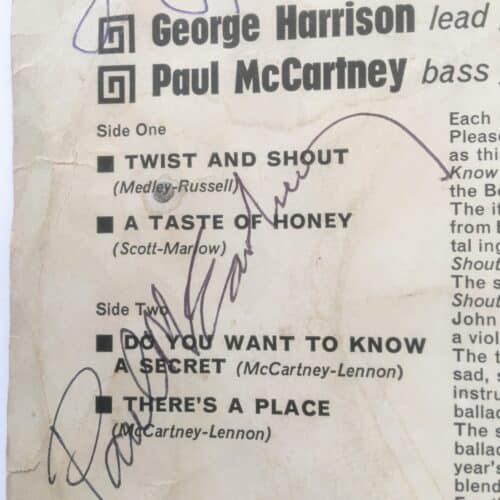 George Harrison lead
Paul McCartney bass
Side One
TWIST AND SHOUT
(Medley-Russell)
A TASTE OF HONEY
(Scott-Marlow)
Side Two
DO YOU WANT TO KNOW
A SECRET (McCartney-Lennon)
THERE'S A PLACE
(McCartney-Lennon)
Paul McCartney
Each
Pleas
as thi
Know
the Be
The it
from
tal ing
Shout
The s
Shout
John
a viol
The t
sad, s
instru
ballad
The s
ballad
year's
blend